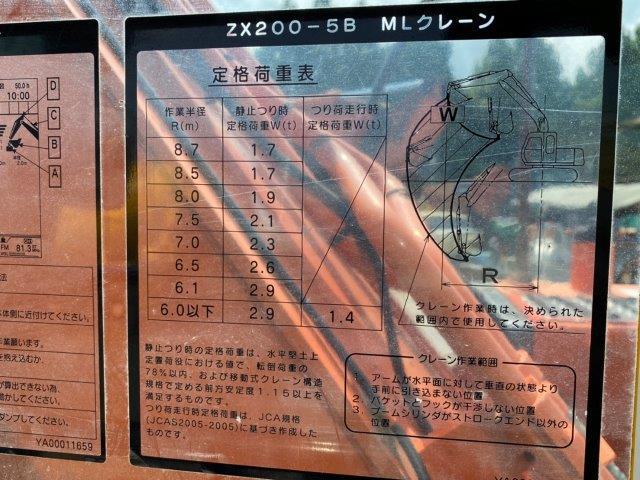 ZX200-5B MLクレーン
定格荷重表
作業半径 R(m) 静止つり時 定格荷重W(t) つり荷走行時 定格荷重W(t)
8.7 1.7
8.5 1.7
8.0 1.9
7.5 2.1
7.0 2.3
6.5 2.6
6.1 2.9
6.0以下 2.9 1.4
W
R
クレーン作業時は、決められた
範囲内で使用してください。
静止つり時の定格荷重は、水平堅土上
定置荷役における値で、転倒荷重の
78%以内、および移動式クレーン構造
規格で定める前方安定度1.15以上を
満足するものです。
つり荷走行時定格荷重は、JCA規格
(JCAS2005-2005)に基づき作成した
ものです。
クレーン作業範囲
1. アームが水平面に対して垂直の状態より
手前に引き込まない位置
2. バケットとフックが干渉しない位置
3. ブームシリンダがストロークエンド以外の
位置
50.0h
10:00
D
C
B
A
2.0m
FM 81.3
体側に近付けてください。
業願います。
を抱え込むか、
が算出できない為、
動かしてください。
ダンプしてください。
YA00011659